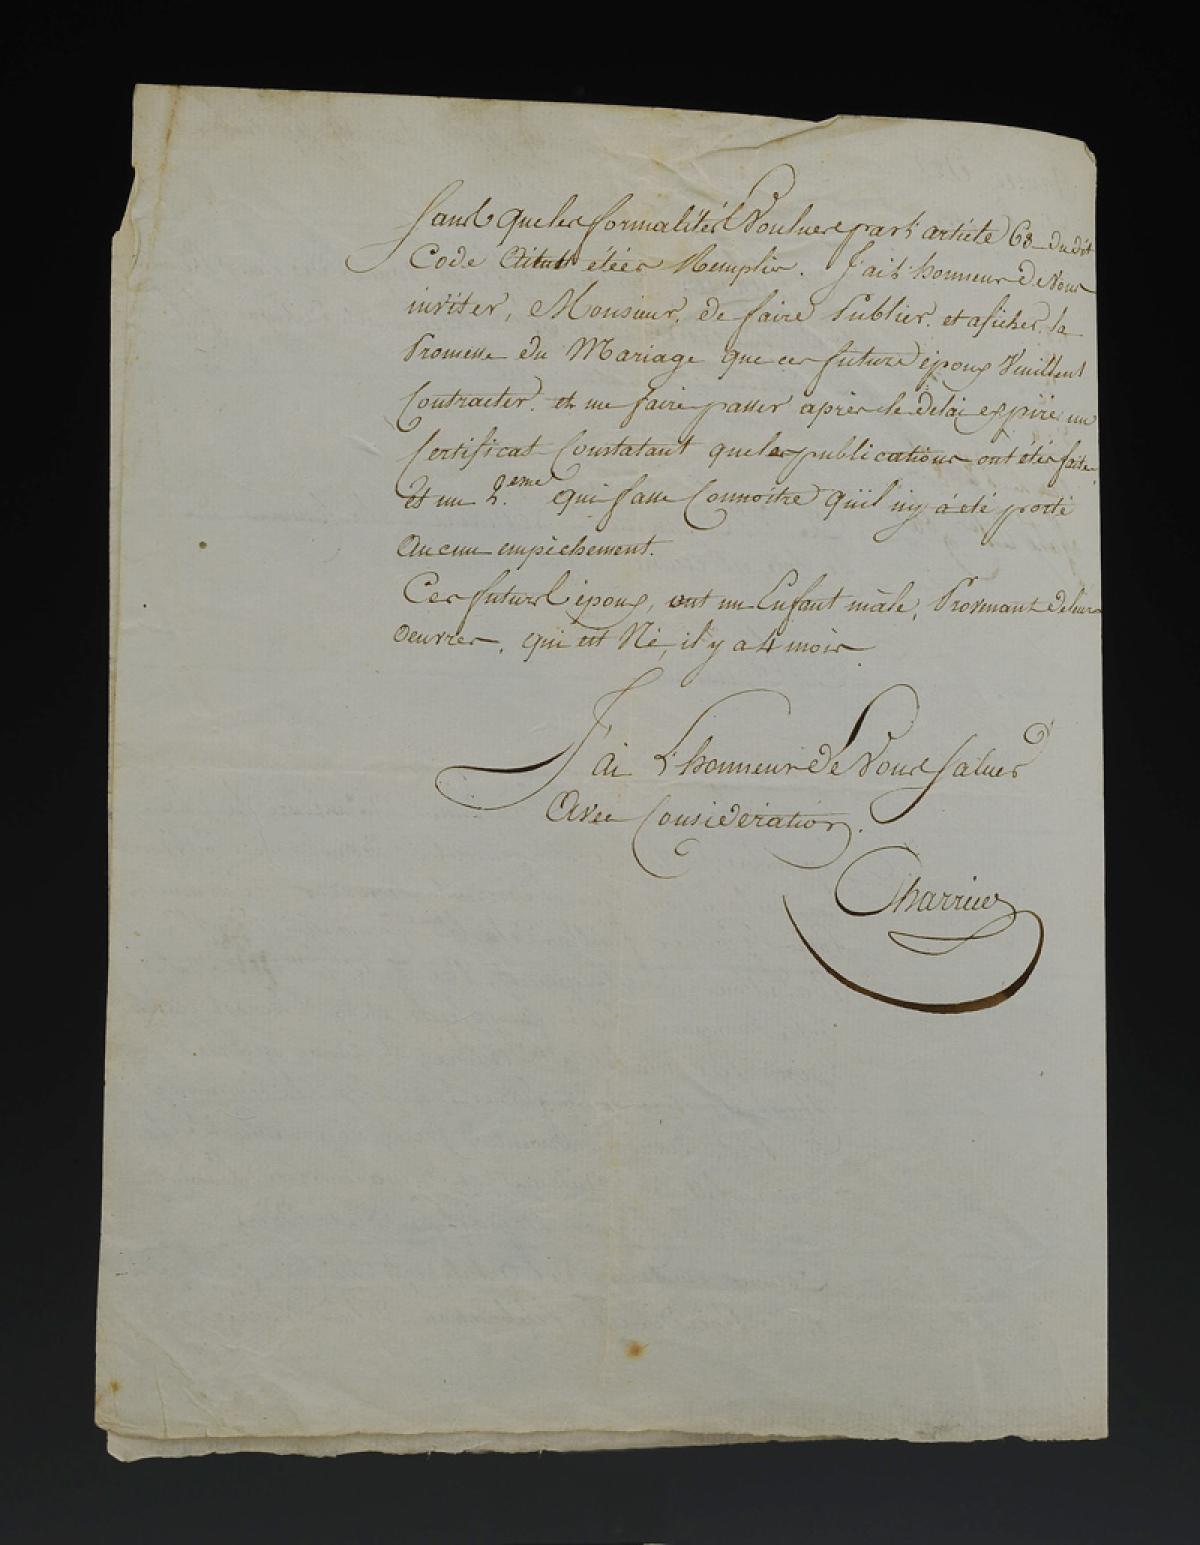 sans que les formalités Voulues par l'article 63 du dit
Code étées Remplies. J'ai l'honneur de Vous
inviter, Monsieur, de faire Publier. et aficher, la
Promesse du Mariage que ces future époux Veuillent
Contracter. et me faire passer après le délai expiré un
Certificat Constatant que les publications ont étés faites
Et un 2.eme qui fasse Connoitre qu'il n'y à été porté
Aucun empêchement.
Ces futurs époux, ont un Enfant mâle, Provenant de leurs
Oeuvres, qui est Né, il y a 4 mois
J'ai L'honneur de Vous saluer
Avec Consideration.
Charrier